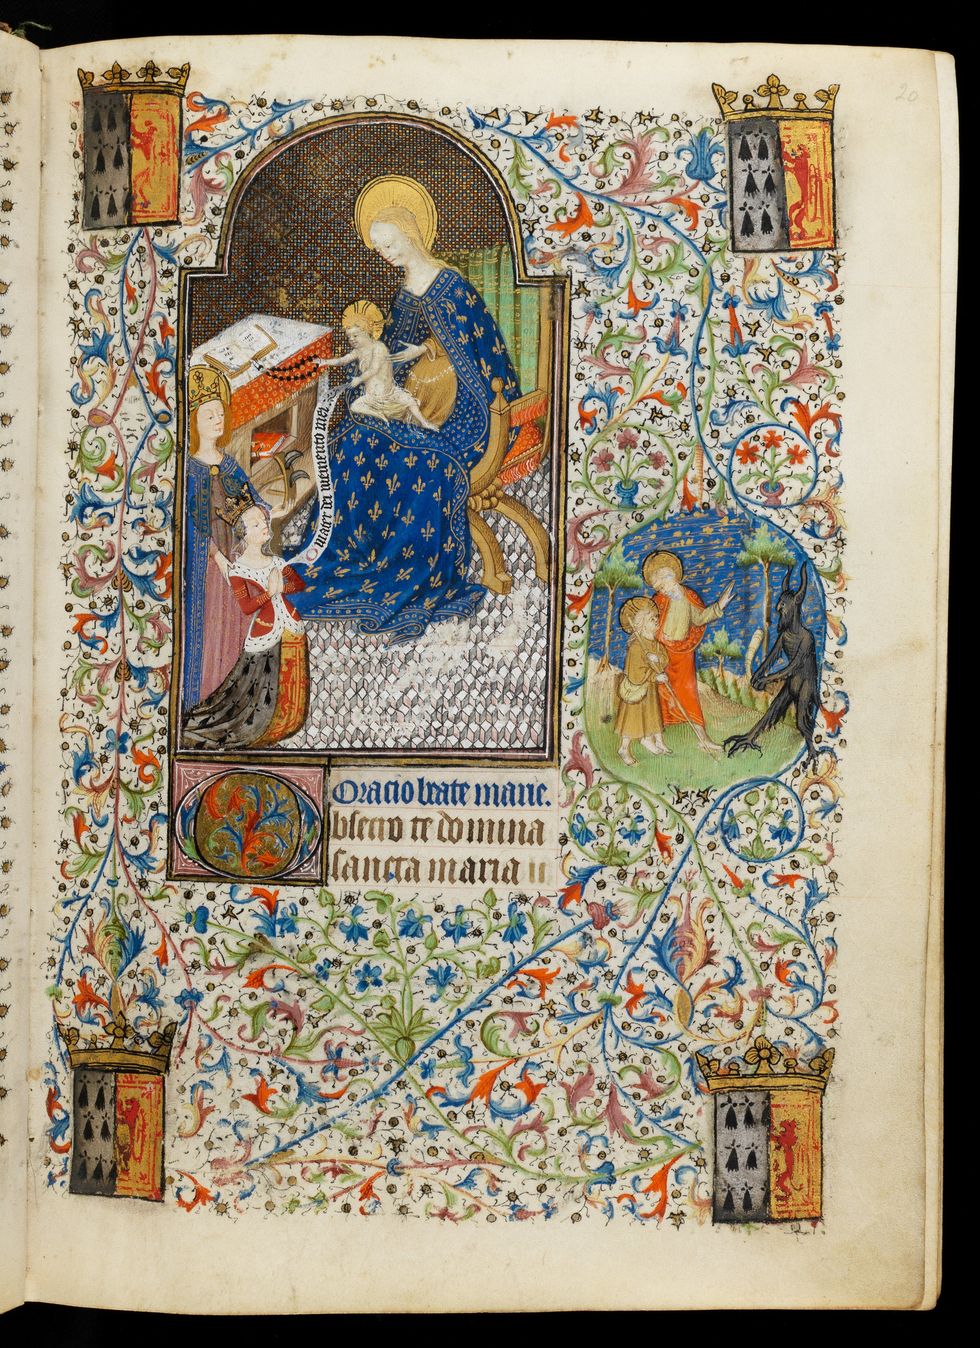 O mater dei memento mei
Oracio beate marie.
Obsecro te domina
sancta maria
20